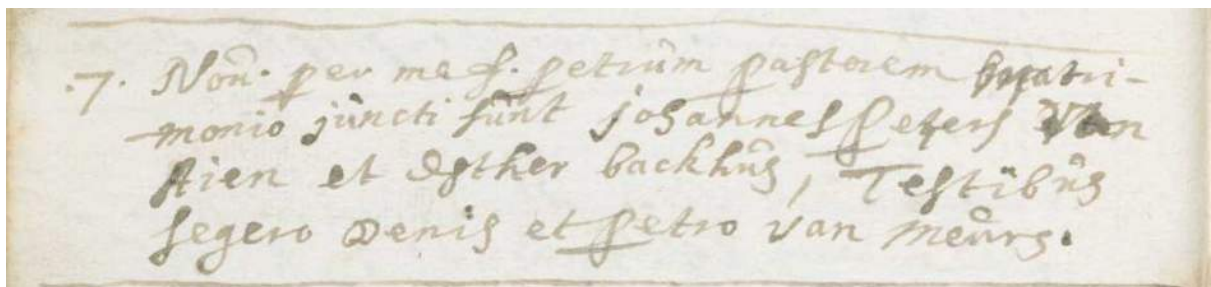 .7. Nov. per me f. petrum pastorem matri-
monio juncti sunt Johannes Peters van
Aien et Esther backhus, Testibus
segero Denis et Petro van meurs.